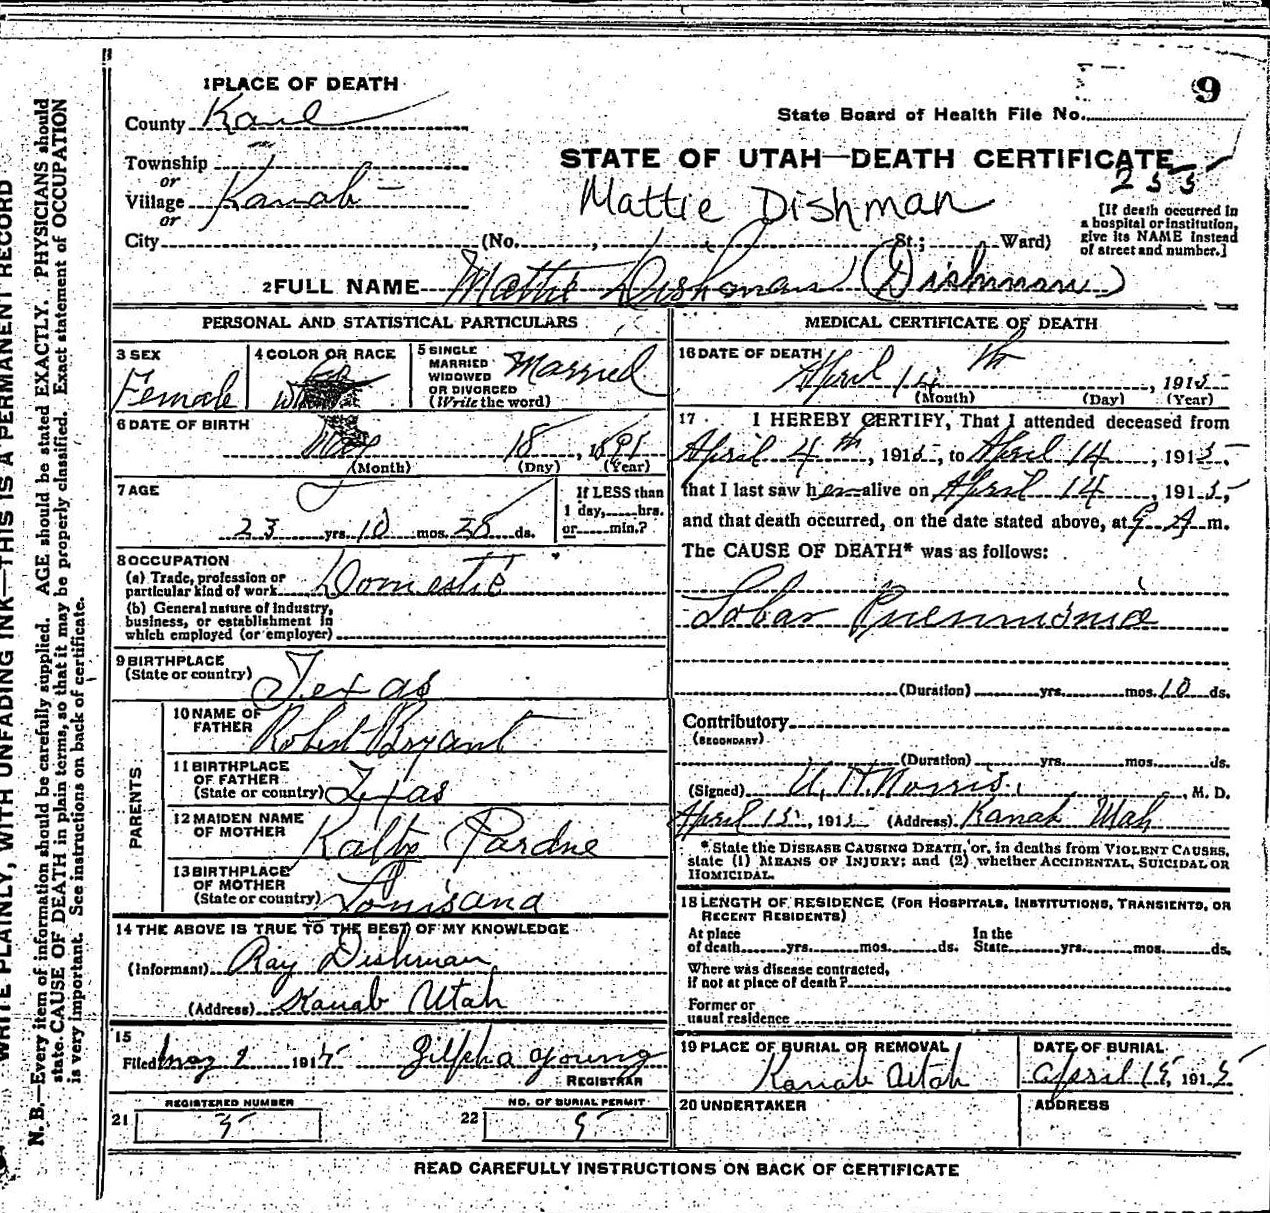 9
1 PLACE OF DEATH
State Board of Health File No.
County Kane
STATE OF UTAH—DEATH CERTIFICATE
Township
or
Village Kanab
or
City (No. , St.; Ward)
Mattie Dishman
255
[If death occurred in
a hospital or institution,
give its NAME instead
of street and number.]
2 FULL NAME Mattie Dishman (Dishman)
PERSONAL AND STATISTICAL PARTICULARS
3 SEX
Female
4 COLOR OR RACE
5 SINGLE
MARRIED
WIDOWED
OR DIVORCED
(Write the word)
Married
6 DATE OF BIRTH
May 18, 1891
(Month) (Day) (Year)
7 AGE
23 yrs. 10 mos. 28 ds.
If LESS than
1 day, hrs.
or min.?
8 OCCUPATION
(a) Trade, profession or
particular kind of work Domestic
(b) General nature of industry,
business, or establishment in
which employed (or employer)
9 BIRTHPLACE
(State or country) Texas
PARENTS
10 NAME OF
FATHER Robert Bryant
11 BIRTHPLACE
OF FATHER
(State or country) Texas
12 MAIDEN NAME
OF MOTHER Pardue
13 BIRTHPLACE
OF MOTHER
(State or country) Louisana
14 THE ABOVE IS TRUE TO THE BEST OF MY KNOWLEDGE
(Informant) Ray Dishman
(Address) Kanab Utah
15
Filed May 2 1915 Zilpha Young
REGISTRAR
REGISTERED NUMBER
21
NO. OF BURIAL PERMIT
22 5
MEDICAL CERTIFICATE OF DEATH
16 DATE OF DEATH
April 14 th, 1915
(Month) (Day) (Year)
17 I HEREBY CERTIFY, That I attended deceased from
April 4 th, 1915, to April 14, 1915,
that I last saw her alive on April 14, 1915,
and that death occurred, on the date stated above, at 9 A m.
The CAUSE OF DEATH* was as follows:
Lobar Pneumonia
(Duration) yrs. mos. 10 ds.
Contributory
(SECONDARY)
(Duration) yrs. mos. ds.
(Signed) Norris, M. D.
April 15, 1915 (Address) Kanab Utah
* State the DISEASE CAUSING DEATH, or, in deaths from VIOLENT CAUSES,
state (1) MEANS OF INJURY; and (2) whether ACCIDENTAL, SUICIDAL OR
HOMICIDAL.
18 LENGTH OF RESIDENCE (FOR HOSPITALS, INSTITUTIONS, TRANSIENTS, OR
RECENT RESIDENTS)
At place
of death yrs. mos. ds.
In the
State yrs. mos. ds.
Where was disease contracted,
if not at place of death?
Former or
usual residence
19 PLACE OF BURIAL OR REMOVAL
Kanab Utah
DATE OF BURIAL
April 15, 1915
20 UNDERTAKER
ADDRESS
READ CAREFULLY INSTRUCTIONS ON BACK OF CERTIFICATE
WRITE PLAINLY, WITH UNFADING INK—THIS IS A PERMANENT RECORD
N. B.—Every item of information should be carefully supplied. AGE should be stated EXACTLY. PHYSICIANS should
state CAUSE OF DEATH in plain terms, so that it may be properly classified. Exact statement of OCCUPATION
is very important. See instructions on back of certificate.